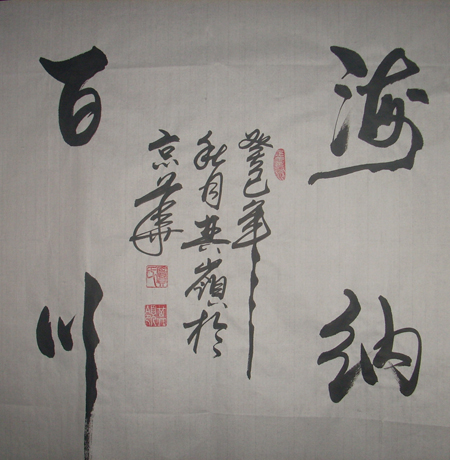 海纳
百川
癸巳年
秋月嶺於
京華